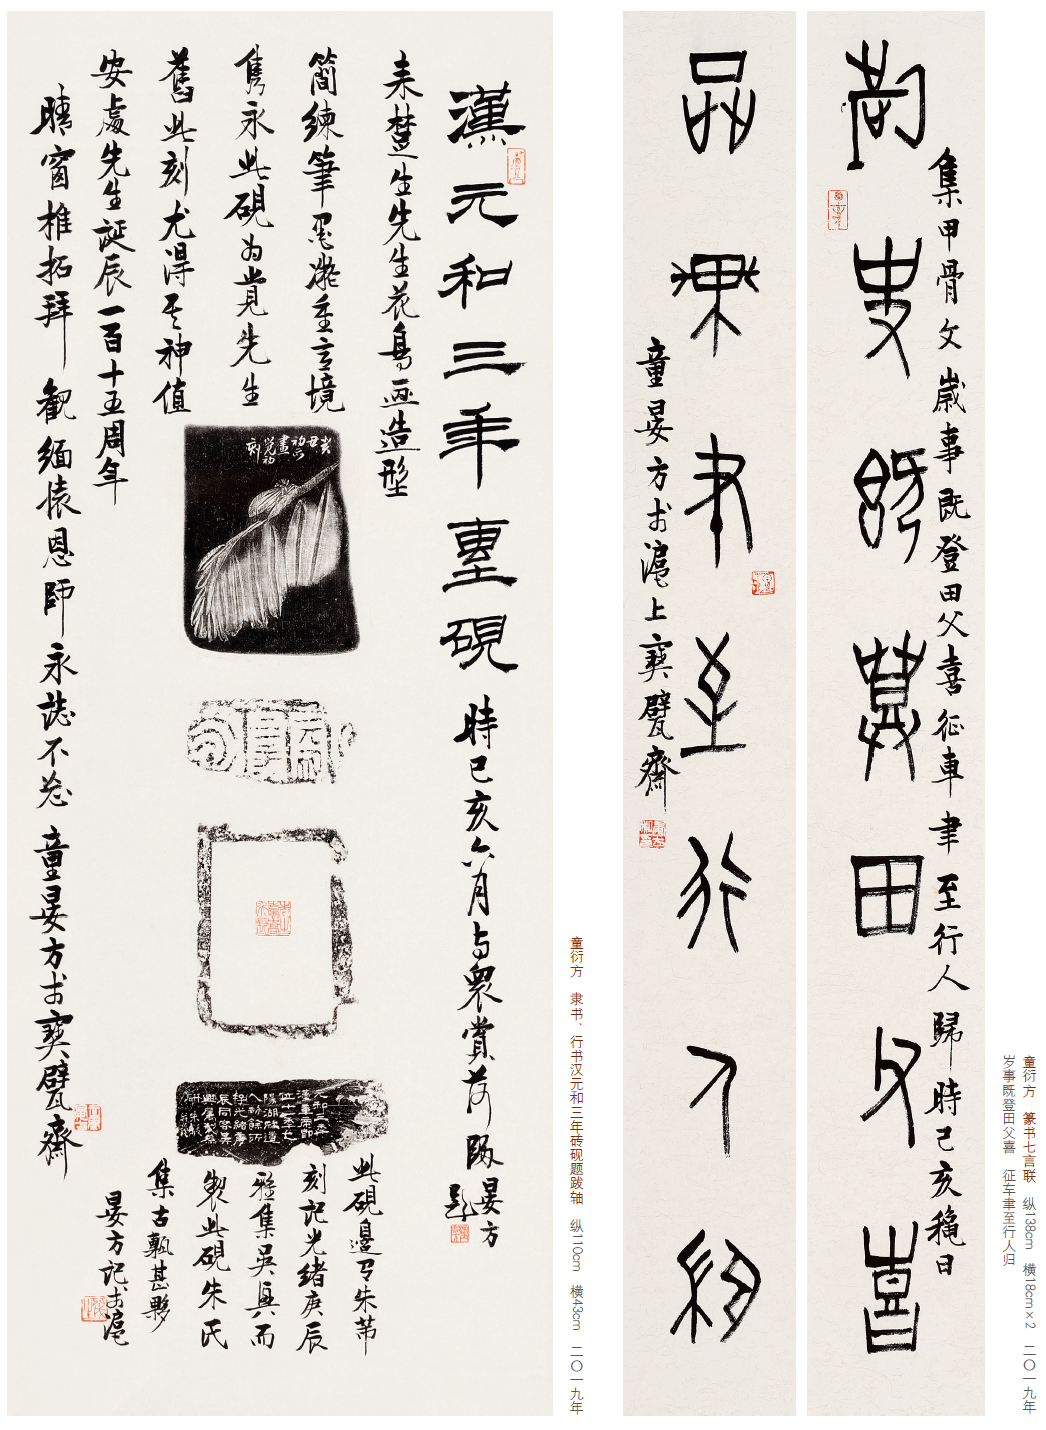 集甲骨文歲事既登田父喜征車聿至行人歸時己亥穐日
童晏方于滬上寶甓齋
童衍方 篆书七言联 纵138cm 横18cm×2 二〇一九年
岁事既登田父喜 征车聿至行人归
漢元和三年重硯
時己亥六月与衆賞荷
晏方題
耒楚生先生花鳥画造型
簡練筆墨凝重意境
雋永此硯为覚先生
舊此刻尤得其神值
安處先生誕辰一百十五周年
晴窗椎拓拜觀緬懷恩師永誌不忘童晏方于寶甓齋
此硯邊有朱芾
刻記光緒庚辰
雅集吳興而
製此硯朱氏
集古甎甚夥
晏方記于滬
童衍方 隶书、行书汉元和三年砖砚题跋轴 纵110cm 横43cm 二〇一九年